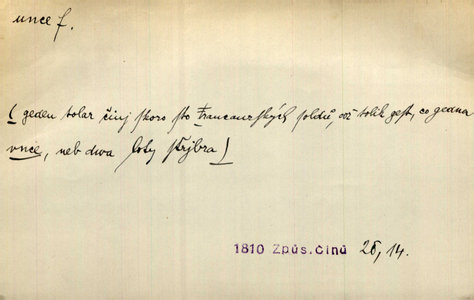 unce f.
( geden tolar činj skoro sto Francauzských soldů, což tolik gest, co gedna
vnce, neb dwa loty střjbra )
1810 Způs. Činů 26, 14.